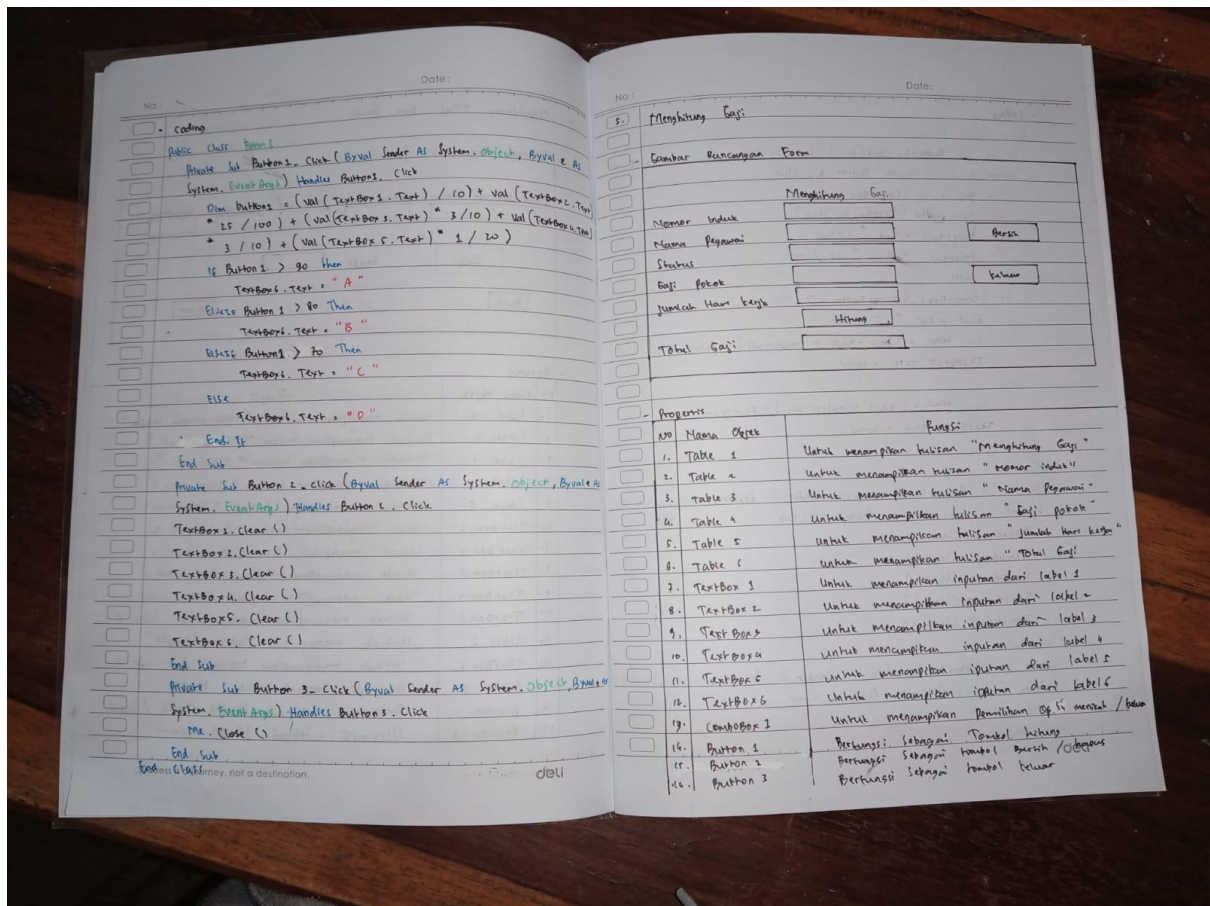 Date:
No.:
- Coding
Public Class Form 1
Private Sub Button1_Click (Byval Sender As System. Object, Byval e As
System. Event Args) Handles Button1. Click
Dim button1 = (val (TextBox1. Text) / 10) + val (TextBox2. Text
* 25 / 100) + (val(TextBox 3. Text) * 3/10) + val (TextBox4. Text)
* 3 / 10) + (val (TextBox 5. Text) * 1 / 20)
If Button 1 > 90 then
TextBox6. Text = "A"
ElseIf Button 1 > 80 Then
TextBox6. Text = "B"
ElseIf Button1 > 70 Then
TextBox6. Text = "C"
Else
TextBox6. Text = "D"
End. If
End Sub
Private Sub Button 2_click (Byval Sender As System. Object, Byval e As
System. Event Args) Handles Button 2. Click
TextBox 1. Clear ()
TextBox 2. Clear ()
TextBox 3. Clear ()
TextBox 4. Clear ()
TextBox 5. Clear ()
TextBox 6. Clear ()
End Sub
Private Sub Button 3_Click (Byval Sender As System. Object, Byval e As
System. Event Args) Handles Button 3. Click
Me. Close ()
End Sub
End Class
journey, not a destination.
deli
No.:
Date:
5. Menghitung Gaji
- Gambar Rancangan Form
Menghitung Gaji
Nomor Induk
Nama Pegawai
Bersih
Status
Gaji Pokok
keluar
Jumlah Hari kerja
Hitung
Total Gaji
- Propertis
No Nama Objek Fungsi
1. Table 1 Untuk menampilkan tulisan "Menghitung Gaji"
2. Table 2 Untuk menampilkan tulisan "Nomor induk"
3. Table 3 Untuk menampilkan tulisan "Nama Pegawai"
4. Table 4 Untuk menampilkan tulisan "Gaji pokok"
5. Table 5 Untuk menampilkan tulisan "Jumlah Hari kerja"
6. Table 6 Untuk menampilkan tulisan "Total Gaji
7. TextBox 1 Untuk menampilkan inputan dari label 1
8. TextBox 2 Untuk menampilkan inputan dari label 2
9. Text Box 3 Untuk menampilkan inputan dari label 3
10. TextBox 4 untuk menampilkan inputan dari label 4
11. TextBox 5 untuk menampilkan iputan dari label 5
12. TextBox 6 Untuk menampilkan inputan dari label 6
13. ComboBox 1 Untuk menampilkan Pemilihan Opsi menikah / belum
14. Button 1 Berfungsi Sebagai Tombol hitung
15. Button 2 Berfungsi Sebagai tombol Bersih / hapus
16. Button 3 Berfungsi Sebagai tombol keluar
deli